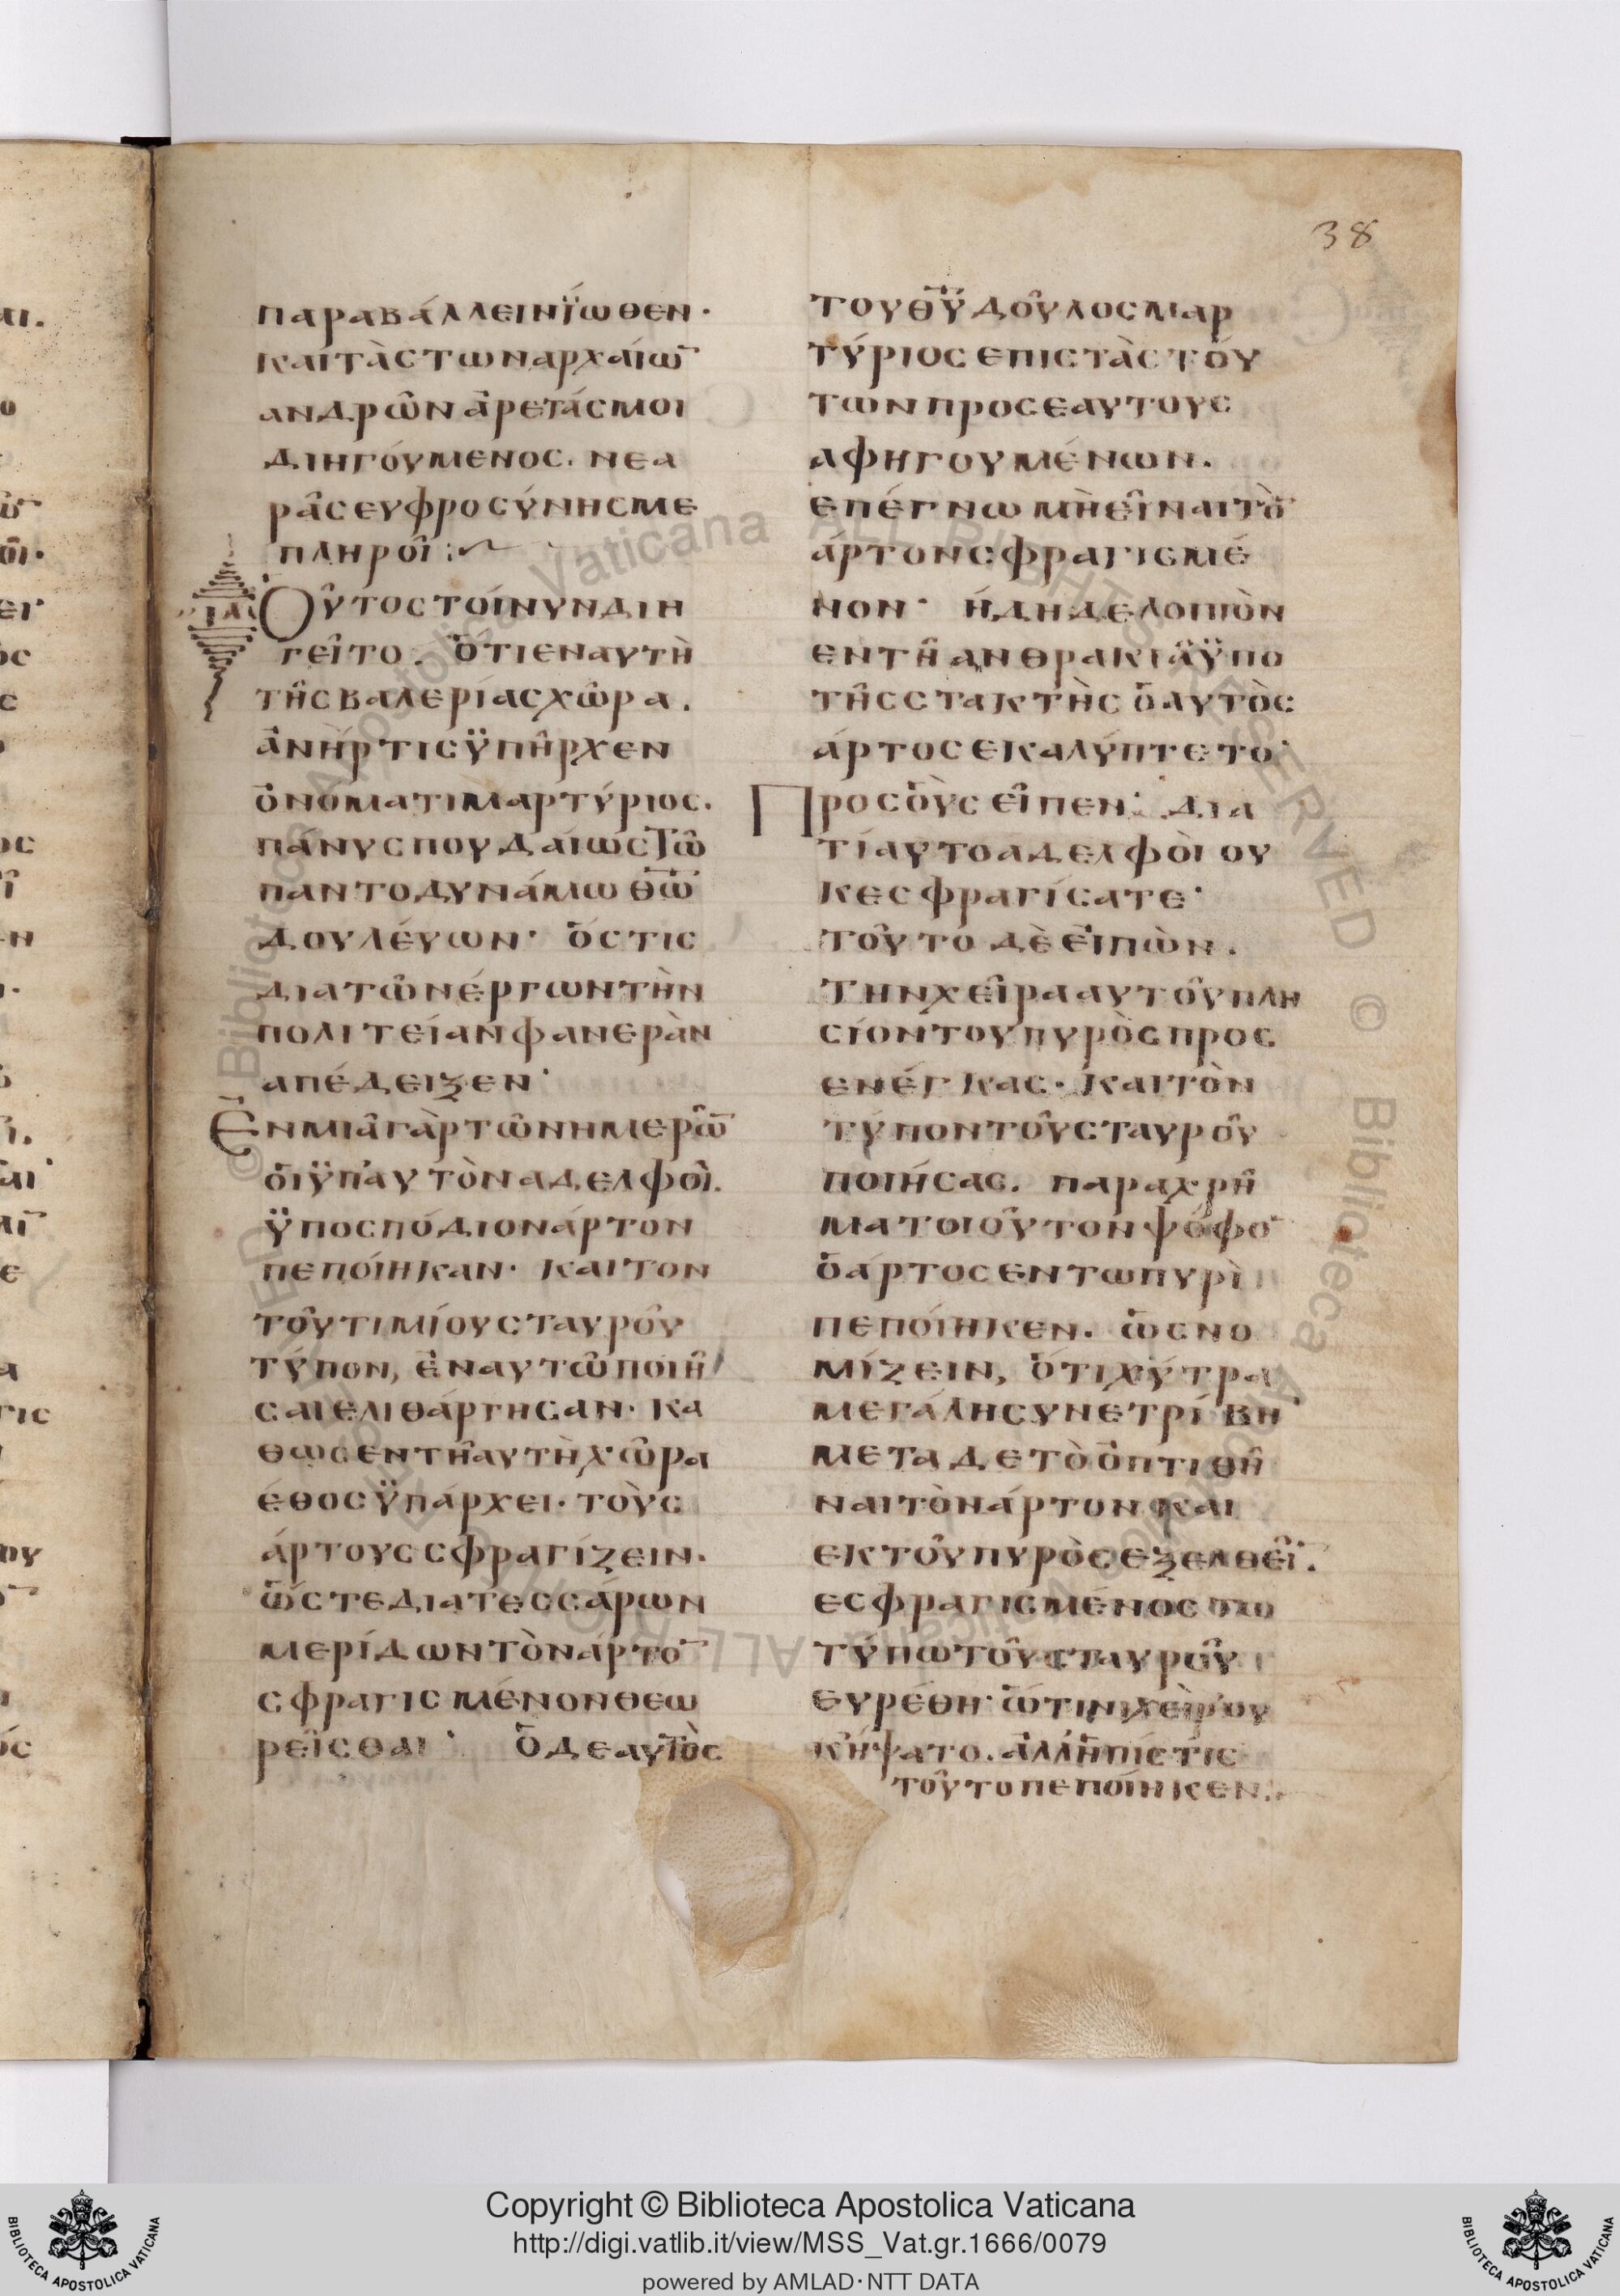 38
παραβάλλειν ΐωθεν·
καί τὰς των αρχαίω̅
ανδρῶν ἀρετάς μοι
διηγόυμενος. νεα
ρᾶς ευφροσύνης με
πληροῖ :
ΙΑ Οὗτος τοίνυν διη
γεῖτο. ὅτι εν αυτὴ
τῆς βαλερίας χῶρα.
ἀνήρ τις ϋπῆρχεν
ὀνοματι μαρτύριος.
πάνυ σπουδαίως τῶ
παντοδυνάμω θ̅ω̅
δουλέυων· ὅς τις
δια τῶν έργων τὴν
πολιτείαν φανερὰν
απέδειξεν·
Εν μιᾶ γὰρ τῶν ημερῶ̅
ὁι ϋπ' αυτὸν αδελφοὶ.
ϋποσπόδιον άρτον
πεποίηκαν· και τον
τοῦ τιμίου σταυροῦ
τύπον, ἐν αυτῶ ποιῆ
σαι ελιθάργησαν· κα
θως εν τῆ αυτὴ χῶρα
έθος ϋπάρχει· τοὺς
άρτους σφραγίζειν·
ὥστε δια τεσσάρων
μερίδων τὸν άρτο̅
σφραγισμένον θεω
ρεῖσθαι· ὁ δε αυτὸς
του θ̅υ̅ δοῦλος μαρ
τύριος επιστὰς τού
των προς εαυτους
αφηγουμένων.
επέγνω μὴ εῖναι τὸ̅
άρτον σφραγισμέ
νον· ήδη δε λοιπὸν
εν τῆ ανθρακιᾶ ϋπο
τῆς στακτὴς ὁ αυτὸς
άρτος εκαλύπτετο·
Προς ὁὺς εῖπεν· δια
τί αυτο αδελφὸι ου
κ εσφραγίσατε·
τοῦτο δὲ εἰπὼν.
την χεῖρα αυτοῦ πλη
σίον του πυρὸς προς
ενέγκας· και τὸν
τύπον τοῦ σταυροῦ
ποιήσας. παραχρῆ
μα τοιοῦτον ψόφο̅
ὁ άρτος εν τω πυρὶ
πεποίηκεν. ὡς νο
μίζειν, ὅτι χύτρα
μεγάλη συνετρίβη·
μετα δε τὸ ὀπτιθῆ
ναι τὸν άρτον και
εκ τοῦ πυρὸς εξελθεῖ̅.
εσφραγισμένος τω
τύπω τοῦ σταυροῦ
ευρέθη· ὥτινι χεὶρ ου
κ ήψατο. ἀλλ' ἡ πίστις
τοῦτο πεποίηκεν.
Copyright © Biblioteca Apostolica Vaticana
http://digi.vatlib.it/view/MSS_Vat.gr.1666/0079
powered by AMLAD·NTT DATA